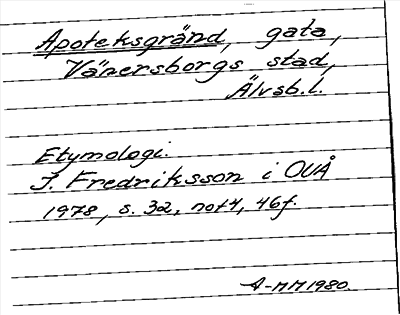 Apoteksgränd, gata,
Vänersborgs stad,
Älvsb.l.
Etymologi.
I. Fredriksson i OUÅ
1978, s. 32, not 4, 46f.
A-MM 1980.